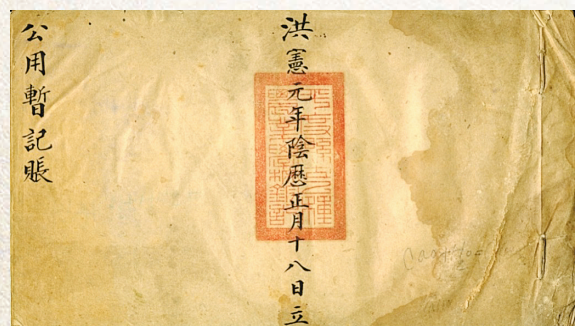 洪憲元年陰曆正月十八日立
公用暫記賬